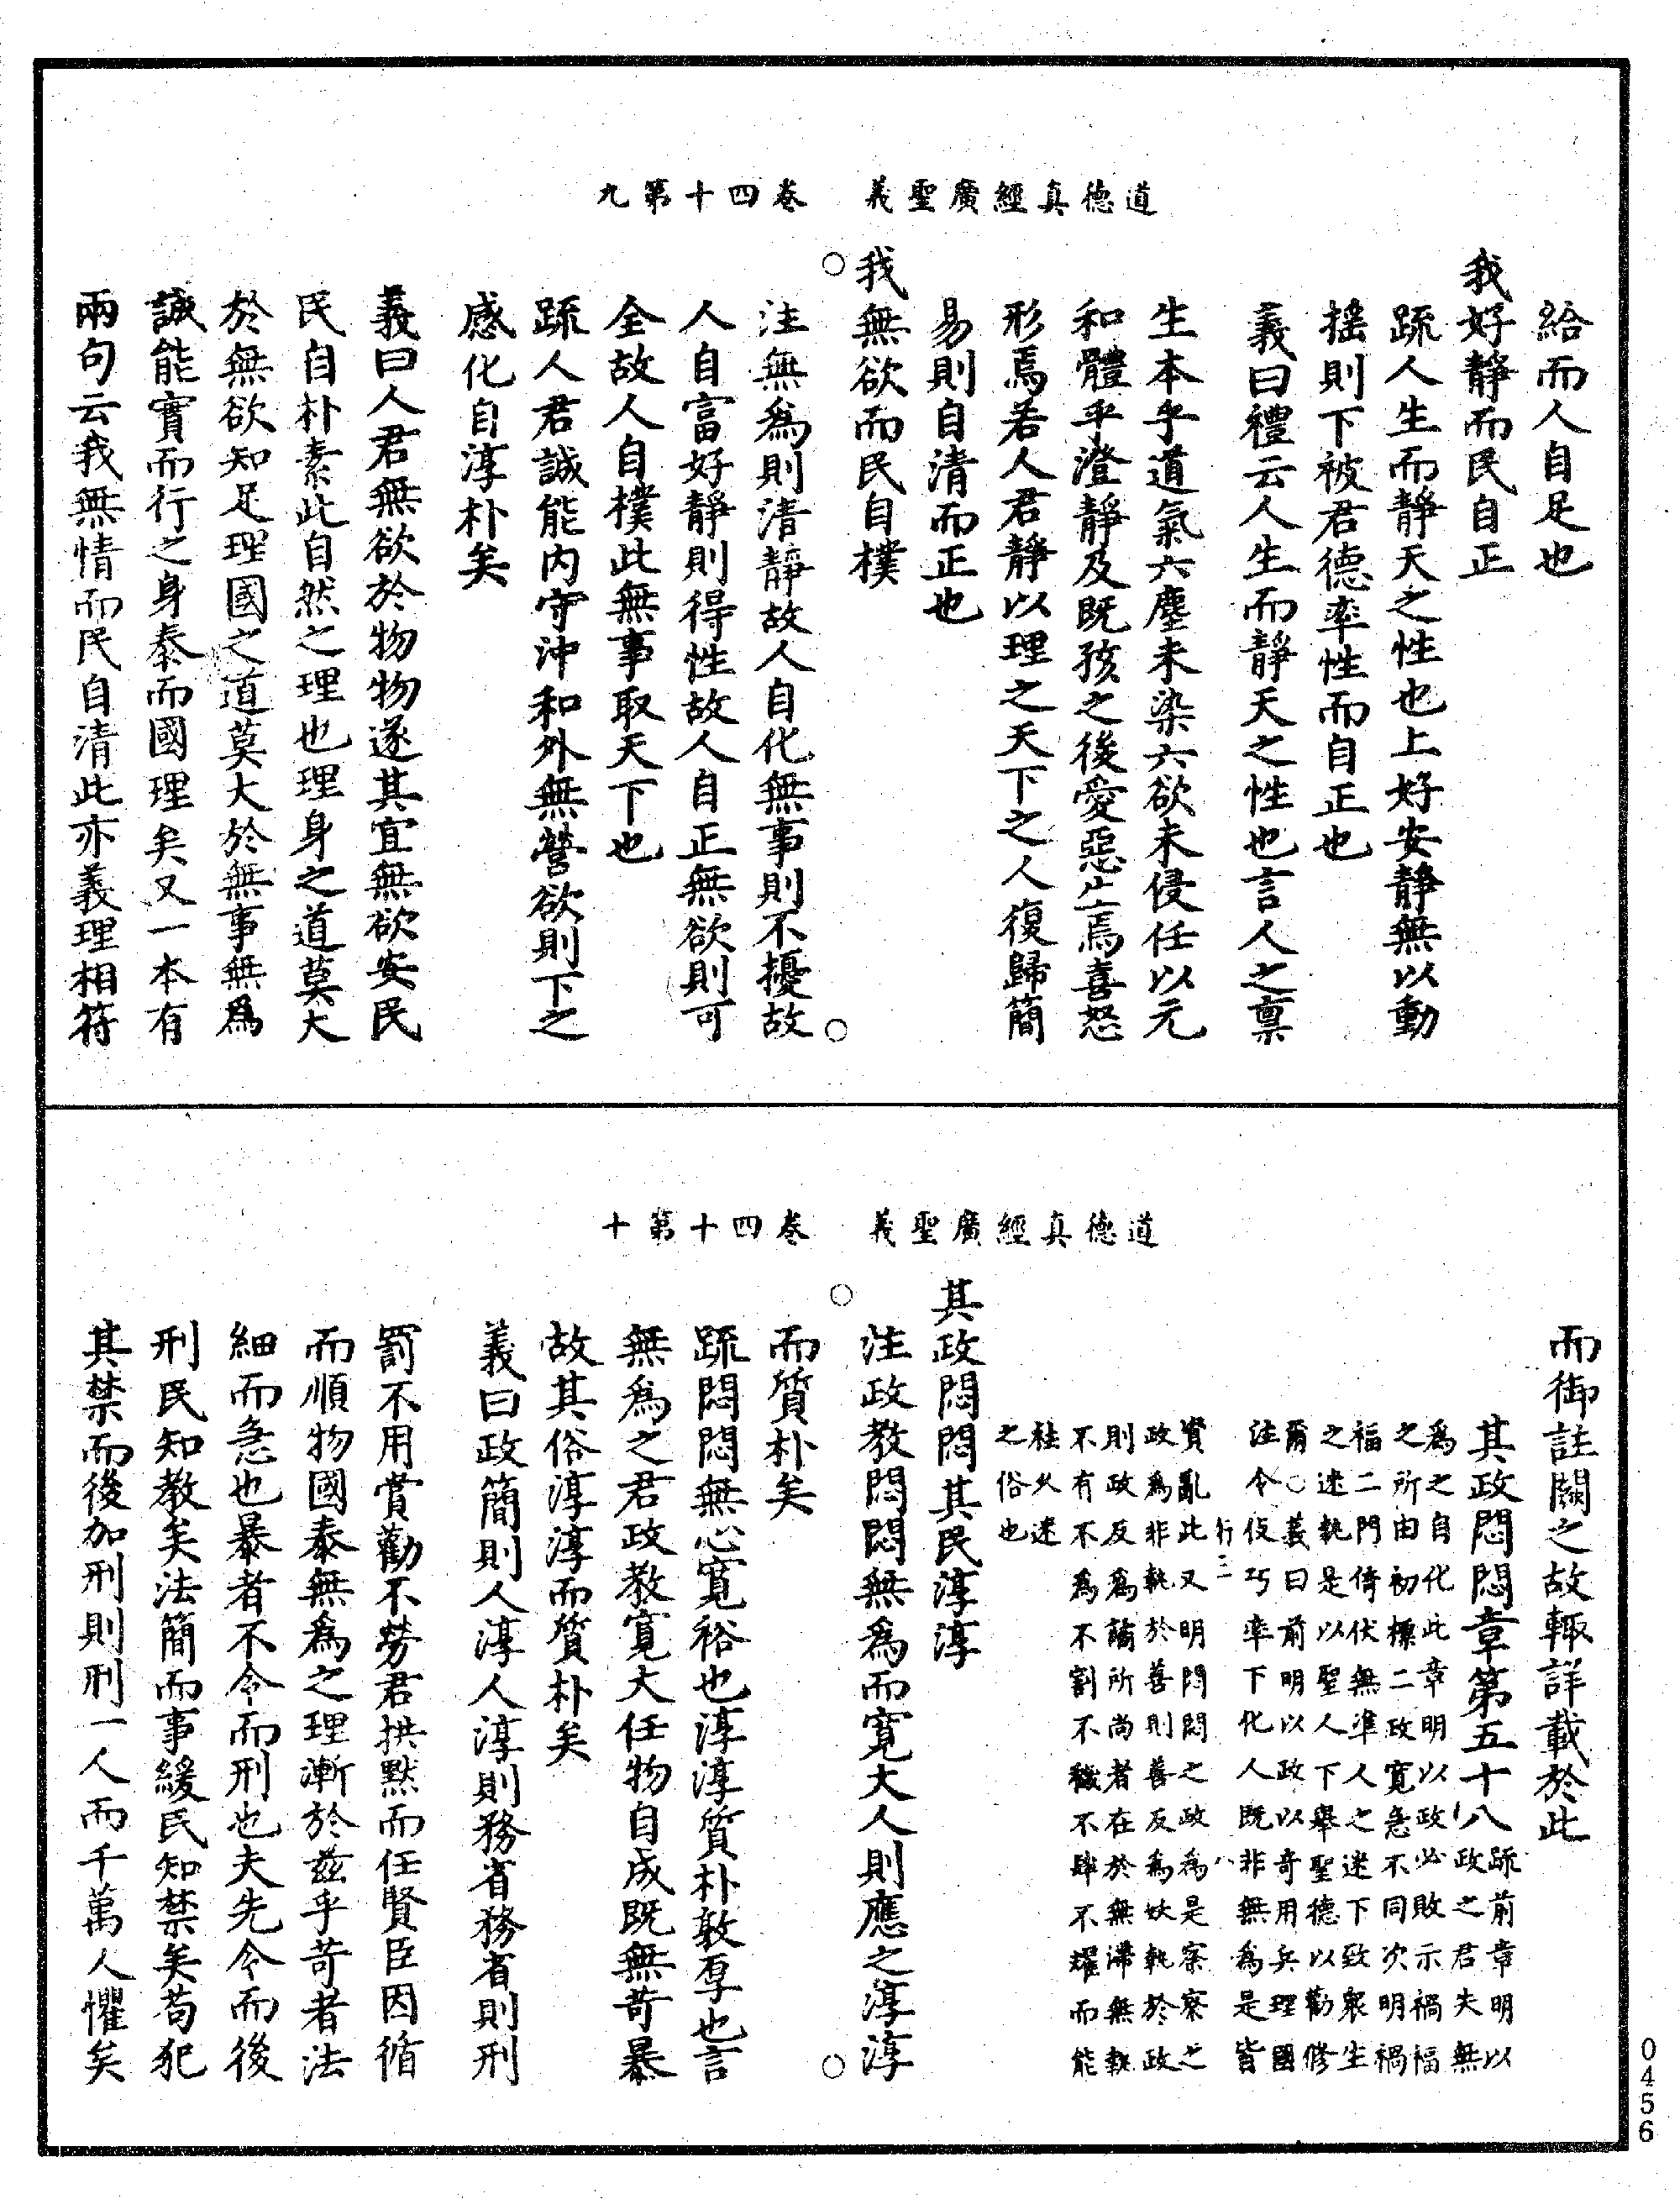 道德真經廣聖義 卷四十第九
給而人自足也
我好靜而民自正
疏人生而靜天之性也上好安靜無以動
揺則下被君德率性而自正也
義曰禮云人生而靜天之性也言人之稟
生本乎道氣六塵未染六欲未侵任以元
和體乎澄靜及既孩之後愛惡生焉喜怒
形焉若人君靜以理之天下之人復歸簡
易則自清而正也
我無欲而民自樸
○ ○
注無為則清靜故人自化無事則不擾故
人自富好靜則得性故人自正無欲則可
全故人自樸此無事取天下也
疏人君誠能内守沖和外無營欲則下之
感化自淳朴矣
義曰人君無欲於物物遂其宜無欲安民
民自朴素此自然之理也理身之道莫大
於無欲知足理國之道莫大於無事無為
誠能實而行之身泰而國理矣又一本有
兩句云我無情而民自清此亦義理相符
道德真經廣聖義 卷四十第十
而御註闕之故輙詳載於此
其政悶悶章第五十八
疏前章明以
政之君夫無
為之自化此章明以政必敗示禍福
之所由初標二政寬急不同次明禍
福二門倚伏無準人之迷下致衆生
之迷執是以聖人下舉聖德以勸修
爾○義曰前明以政以奇用兵理國
注令伎巧率下化人既非無為是皆
行三 八
亂此又明悶悶之政為是察察之
政為非執於善則善反為妖執於政
則政反為所尚者在於無滯無執
不有不為不割不穢不肆不耀而能
袪久迷
之俗也
其政悶悶其民淳淳
注政教悶悶無為而寛大人則應之淳淳
○ ○
而質朴矣
疏悶悶無心寛裕也淳淳質朴敦厚也言
無為之君政教寛大任物自成既無苛暴
故其俗淳淳而質朴矣
義曰政簡則人淳人淳則務省務省則刑
罰不用賞勸不勞君拱默而任賢臣因循
而順物國泰無為之理漸於茲乎苛者法
細而急也暴者不令而刑也夫先令而後
刑民知教矣法簡而事緩民知禁矣苟犯
其禁而後加刑則刑一人而千萬人懼矣
0456